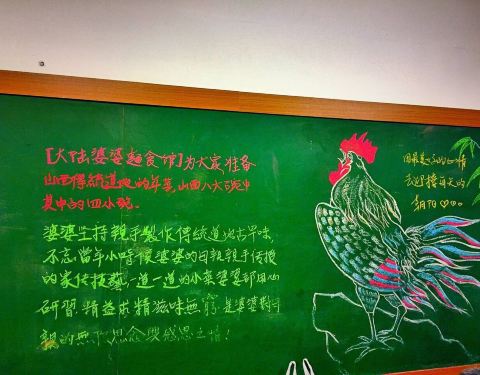 [大陆婆婆麵食馆]为大家准备
山西傳統道地的年菜,山西八大碗中
其中的四小碗。
婆婆坚持親手製作傳統道地古早味,
不忘當年小時候婆婆的母親親手传授
的家传技藝,一道一道的小菜婆婆都用心
研習.精益求精滋味無窮,是婆婆對母
親的無 思念與感恩之情!
用最美好的心情
去迎接每天的
朝阳